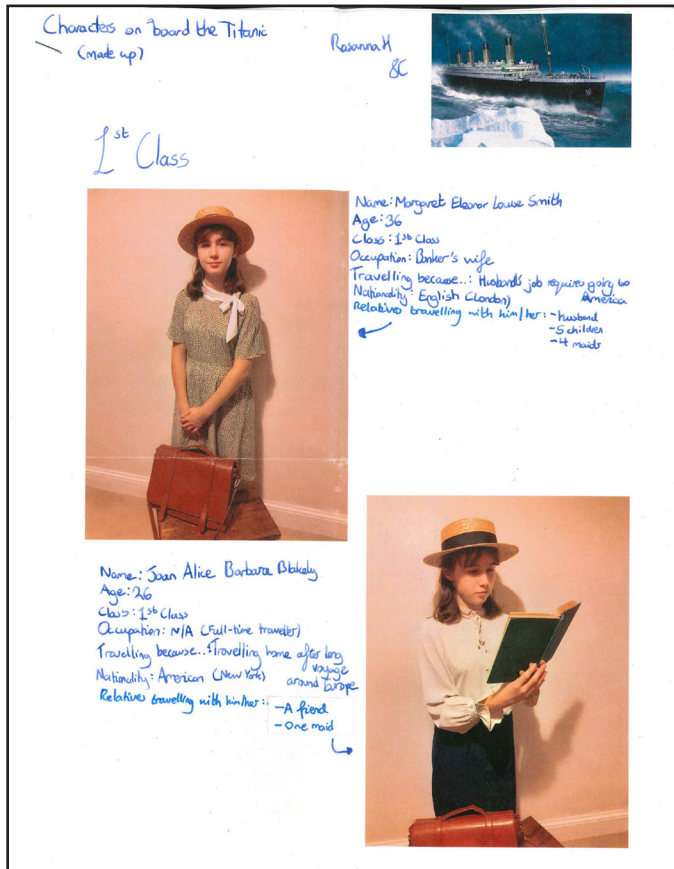 Characters on board the Titanic
(made up)
Rosanna H
8C
1st Class
Name: Margaret Eleanor Louise Smith
Age: 36
Class: 1st Class
Occupation: Banker's wife
Travelling because..: Husband's job requires going to
America
Nationality: English (London)
Relatives travelling with him/her: - husband
- 5 children
- 4 maids
Name: Joan Alice Barbara Blakely
Age: 26
Class: 1st Class
Occupation: N/A (Full-time traveller)
Travelling because..: Travelling home after long
voyage
around Europe
Nationality: American (New York)
Relatives travelling with him/her:
- A friend
- One maid